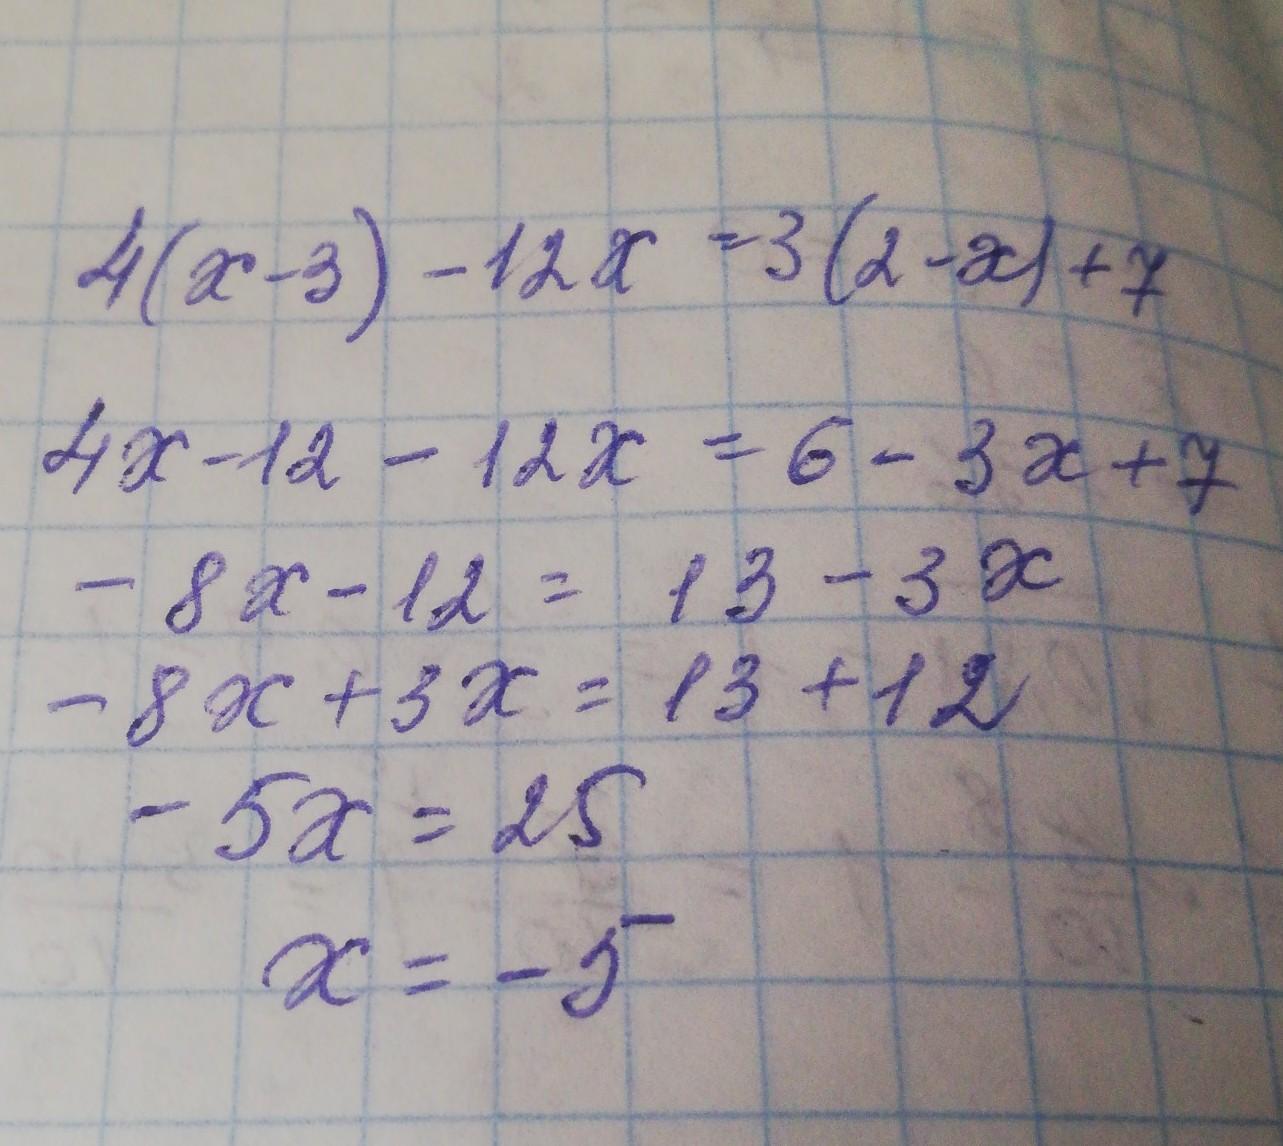 4(x-3)-12x=3(2-x)+7
4x-12-12x=6-3x+7
-8x-12=13-3x
-8x+3x=13+12
-5x=25
x=-5